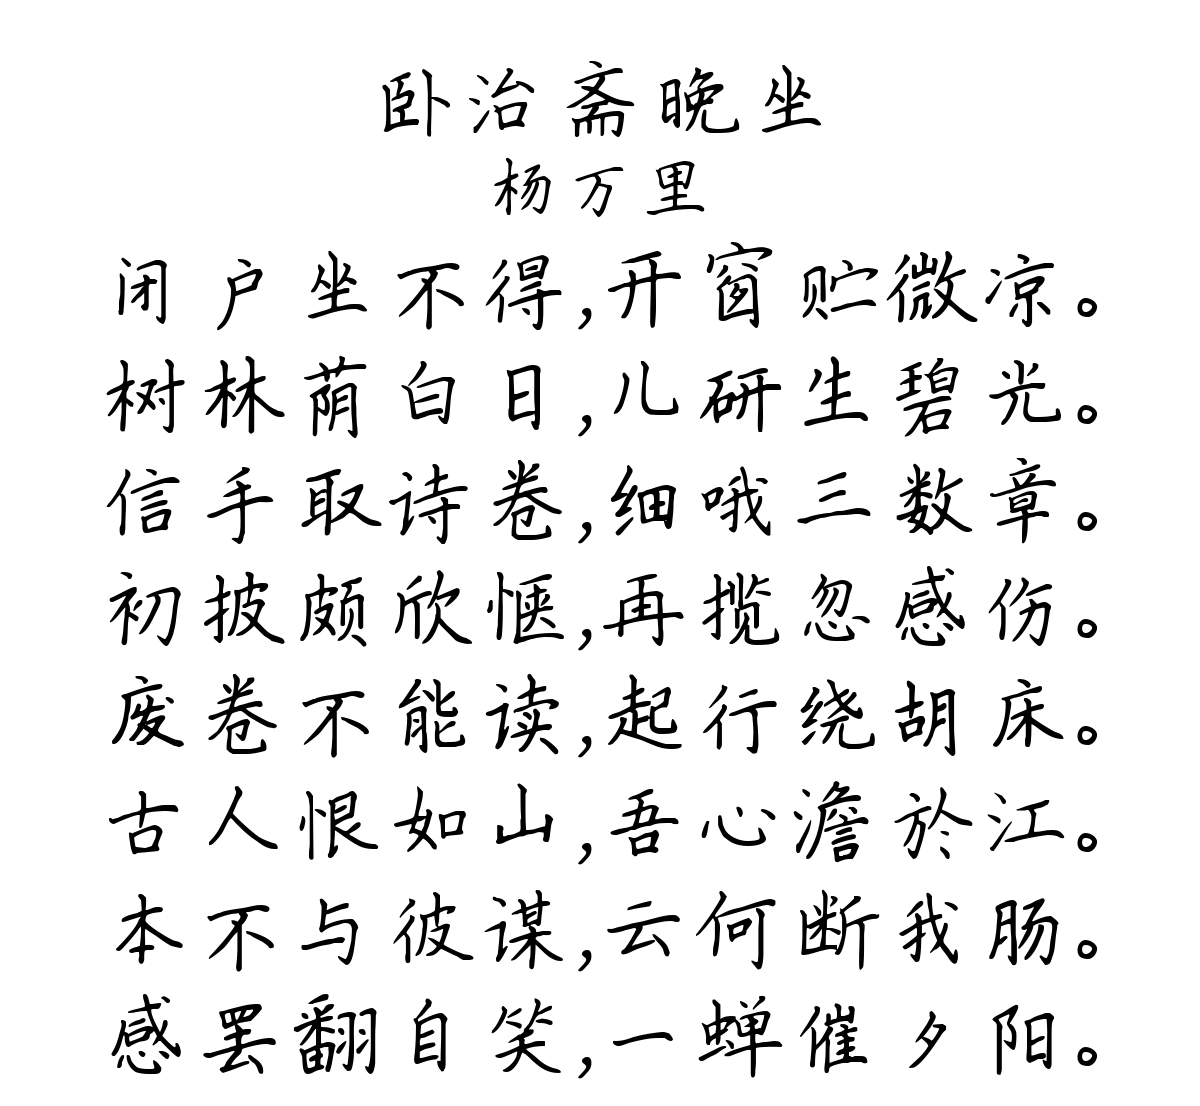 卧治斋晚坐
杨万里
闭户坐不得,开窗贮微凉。
树林荫白日,儿研生碧光。
信手取诗卷,细哦三数章。
初披颇欣惬,再揽忽感伤。
废卷不能读,起行绕胡床。
古人恨如山,吾心澹於江。
本不与彼谋,云何断我肠。
感罢翻自笑,一蝉催夕阳。